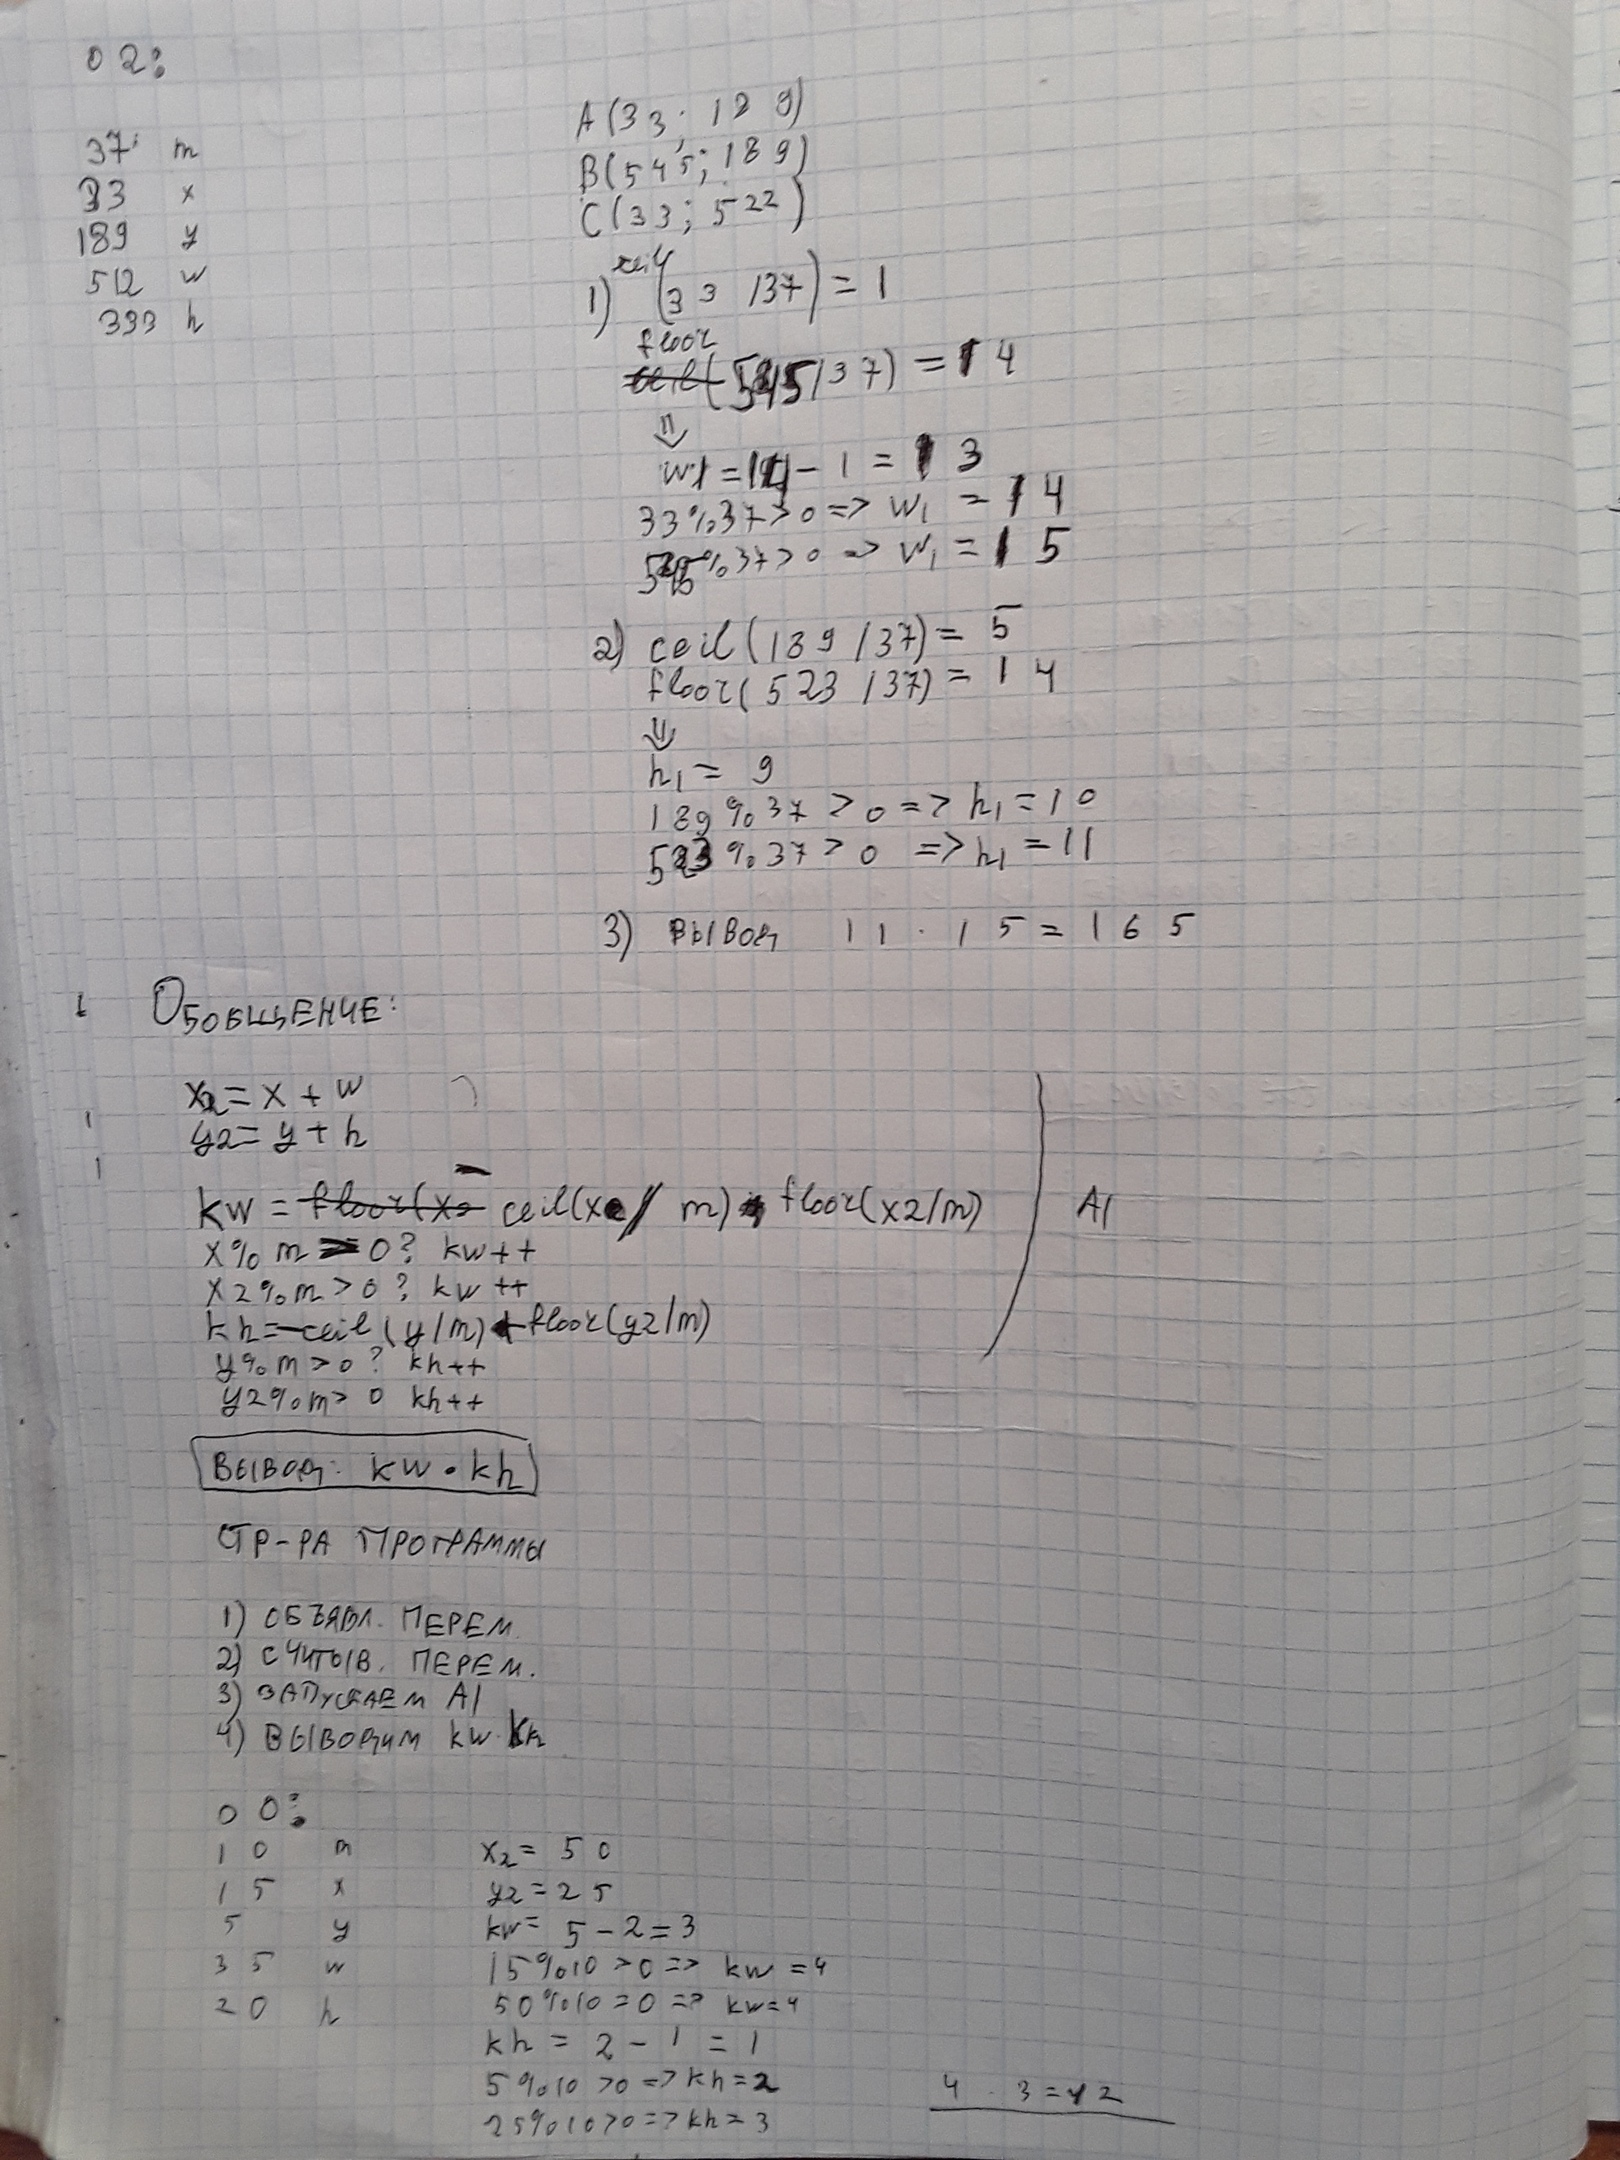 02:
37 m
33 x
189 y
512 w
333 h
A(33; 189)
B(545; 189)
C(33; 522)
1) ceil(33/37) = 1
floor
ceil(545/37) = 14
⇓
w1 = 14 - 1 = 13
33%37>0 => w1 = 14
545%37>0 => w1 = 15
2) ceil(189/37) = 5
floor(523/37) = 14
⇓
h1 = 9
189%37 > 0 => h1 = 10
523%37 > 0 => h1 = 11
3) ВЫВОД 11 · 15 = 165
ОБОБЩЕНИЕ:
x2 = x + w
y2 = y + h
kw = floor(x2 ceil(x/m) + floor(x2/m)
A1
x%m > 0? kw++
x2%m > 0? kw++
kh = -ceil(y/m) + floor(y2/m)
y%m > 0? kh++
y2%m > 0 kh++
ВЫВОД: kw · kh
СТР-РА ПРОГРАММЫ
1) ОБЪЯВЛ. ПЕРЕМ.
2) СЧИТЫВ. ПЕРЕМ.
3) ЗАПУСКАЕМ A1
4) ВЫВОДИМ kw·kh
00:
10 m
15 x
5 y
35 w
20 h
x2 = 50
y2 = 25
kw = 5 - 2 = 3
15%10 > 0 => kw = 4
50%10 = 0 => kw = 4
kh = 2 - 1 = 1
5%10 > 0 => kh = 2
25%10 > 0 => kh = 3
4 · 3 = 12